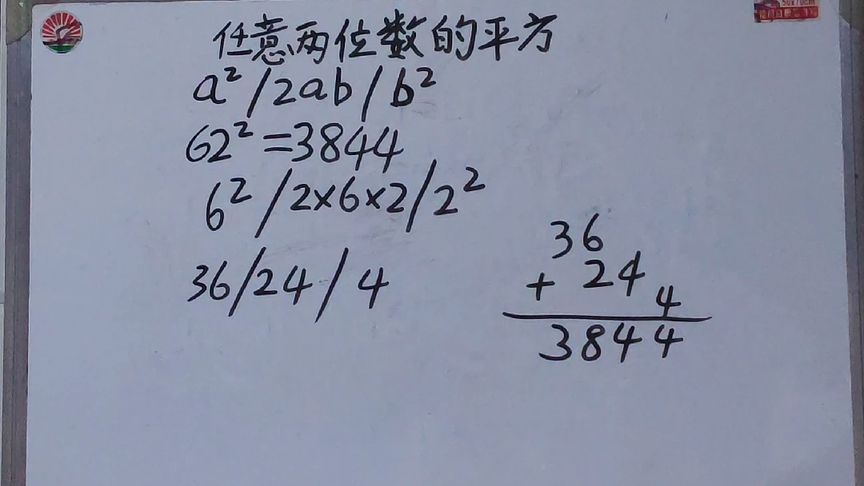 任意两位数的平方
a²/2ab/b²
62²=3844
6²/2×6×2/2²
36/24/4
36
+ 24
4
3844